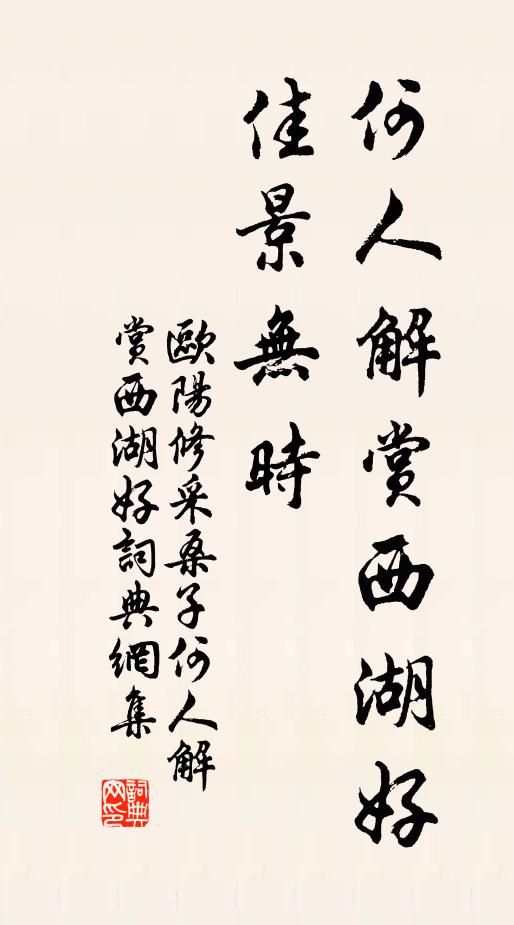 何人解賞西湖好
佳景無時
歐陽修采桑子何人解
賞西湖好詞典網集
詞典
网印